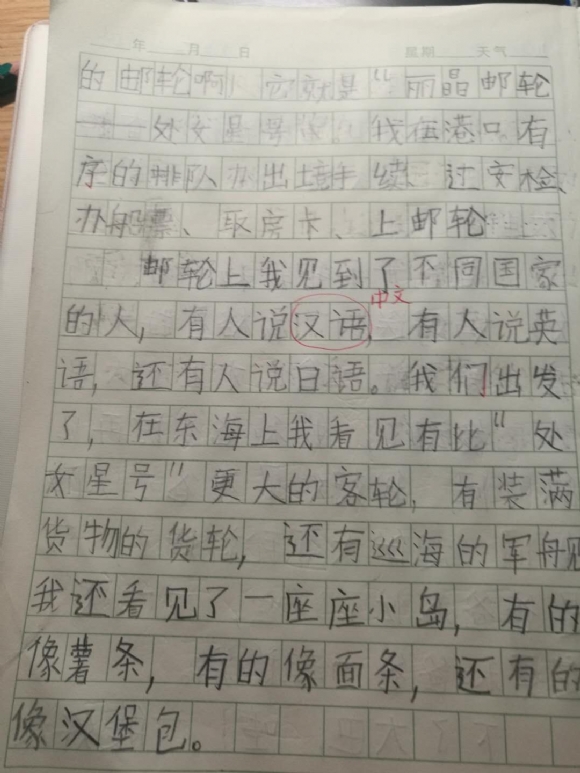 年 月 日 星期 天气
的邮轮啊！它就是“丽晶邮轮
——处女星号 我在港口有
序的排队办出境手续、过安检、
办船票、取房卡、上邮轮
邮轮上我见到了不同国家
的人，有人说汉语，有人说英
中文
语，还有人说日语。我们出发
了，在东海上我看见有比“处
女星号”更大的客轮，有装满
货物的货轮，还有巡海的军舰
我还看见了一座座小岛，有的
像薯条，有的像面条，还有的
像汉堡包。